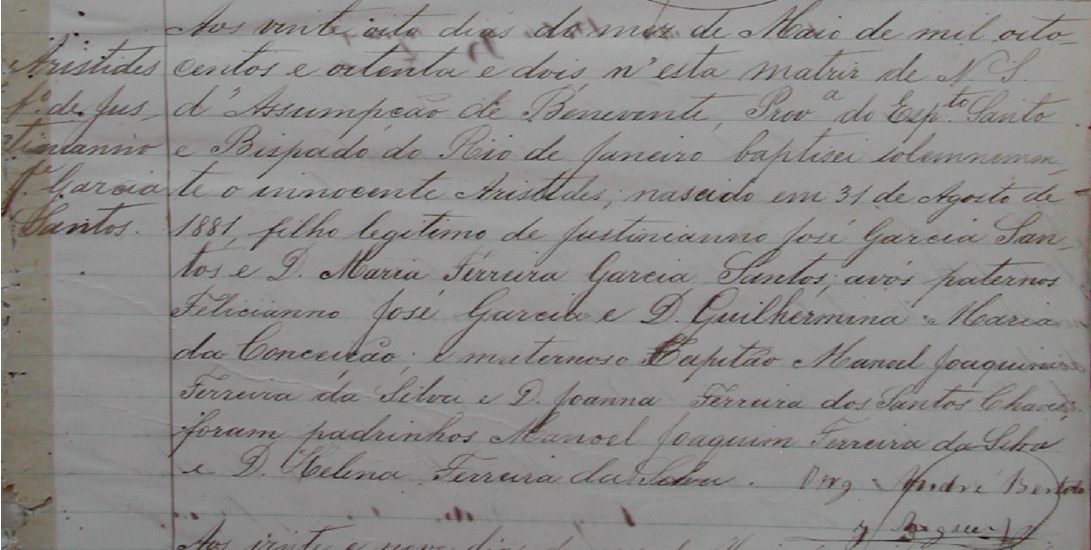 Aos vinte oito dias do mez de Maio de mil oito-
centos e oitenta e dois n'esta matriz de N. S.
d'Assumpção de Benevente, Prov.ª do Esp.to Santo
e Bispado do Rio de Janeiro baptisei solemnemen-
te o innocente Aristides, nascido em 31 de Agosto de
1881, filho legitimo de Justinianno José Garcia San-
tos e D. Maria Ferreira Garcia Santos; avós paternos
Felicianno José Garcia e D. Guilhermina Maria
da Conceição; e maternos o Capitão Manoel Joaquim
Ferreira da Silva e D. Joanna Ferreira dos Santos Chaves;
foram padrinhos Manoel Joaquim Ferreira da Silva
e D. Helena Ferreira da Silva.
Aristides
f.º de Jus-
tinianno
J.e Garcia
Santos.
André
Aos vinte e nove dias